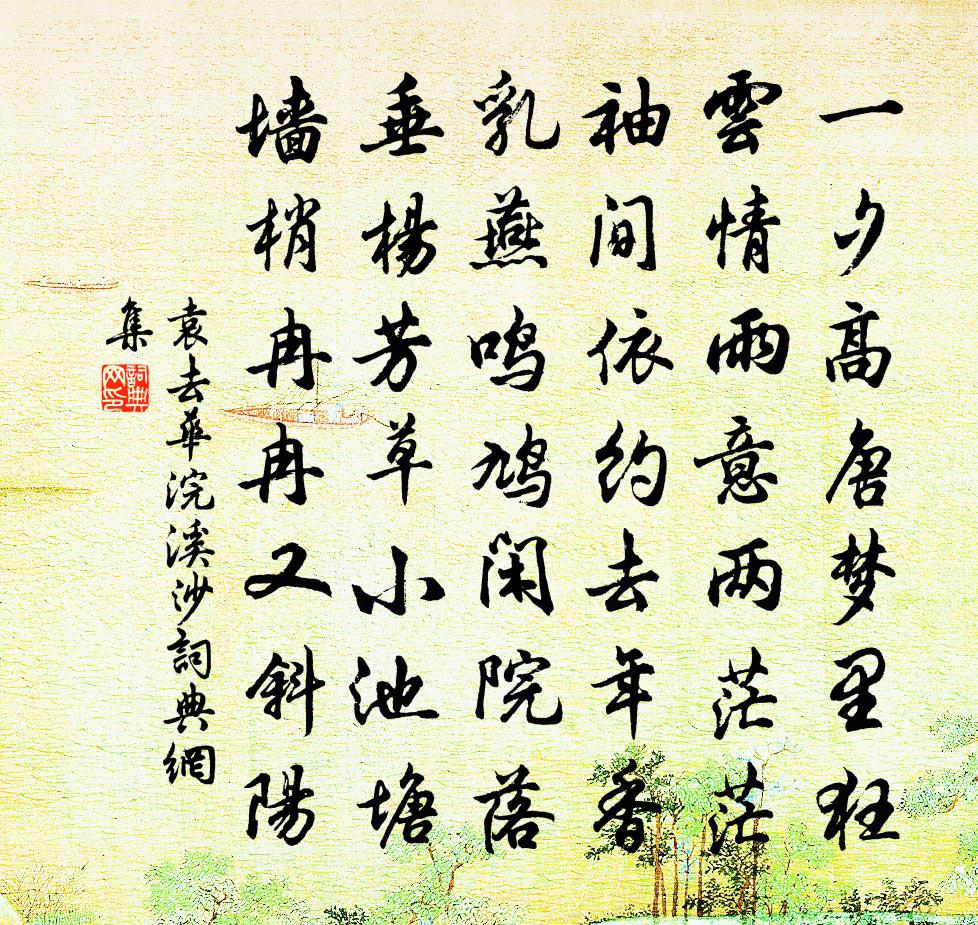 一夕高唐梦里狂
雲情雨意两茫茫
袖间依约去年香
乳燕鸣鸠闲院落
垂楊芳草小池塘
墻梢冉冉又斜陽
袁去華浣溪沙詞典網
集
詞典
网印